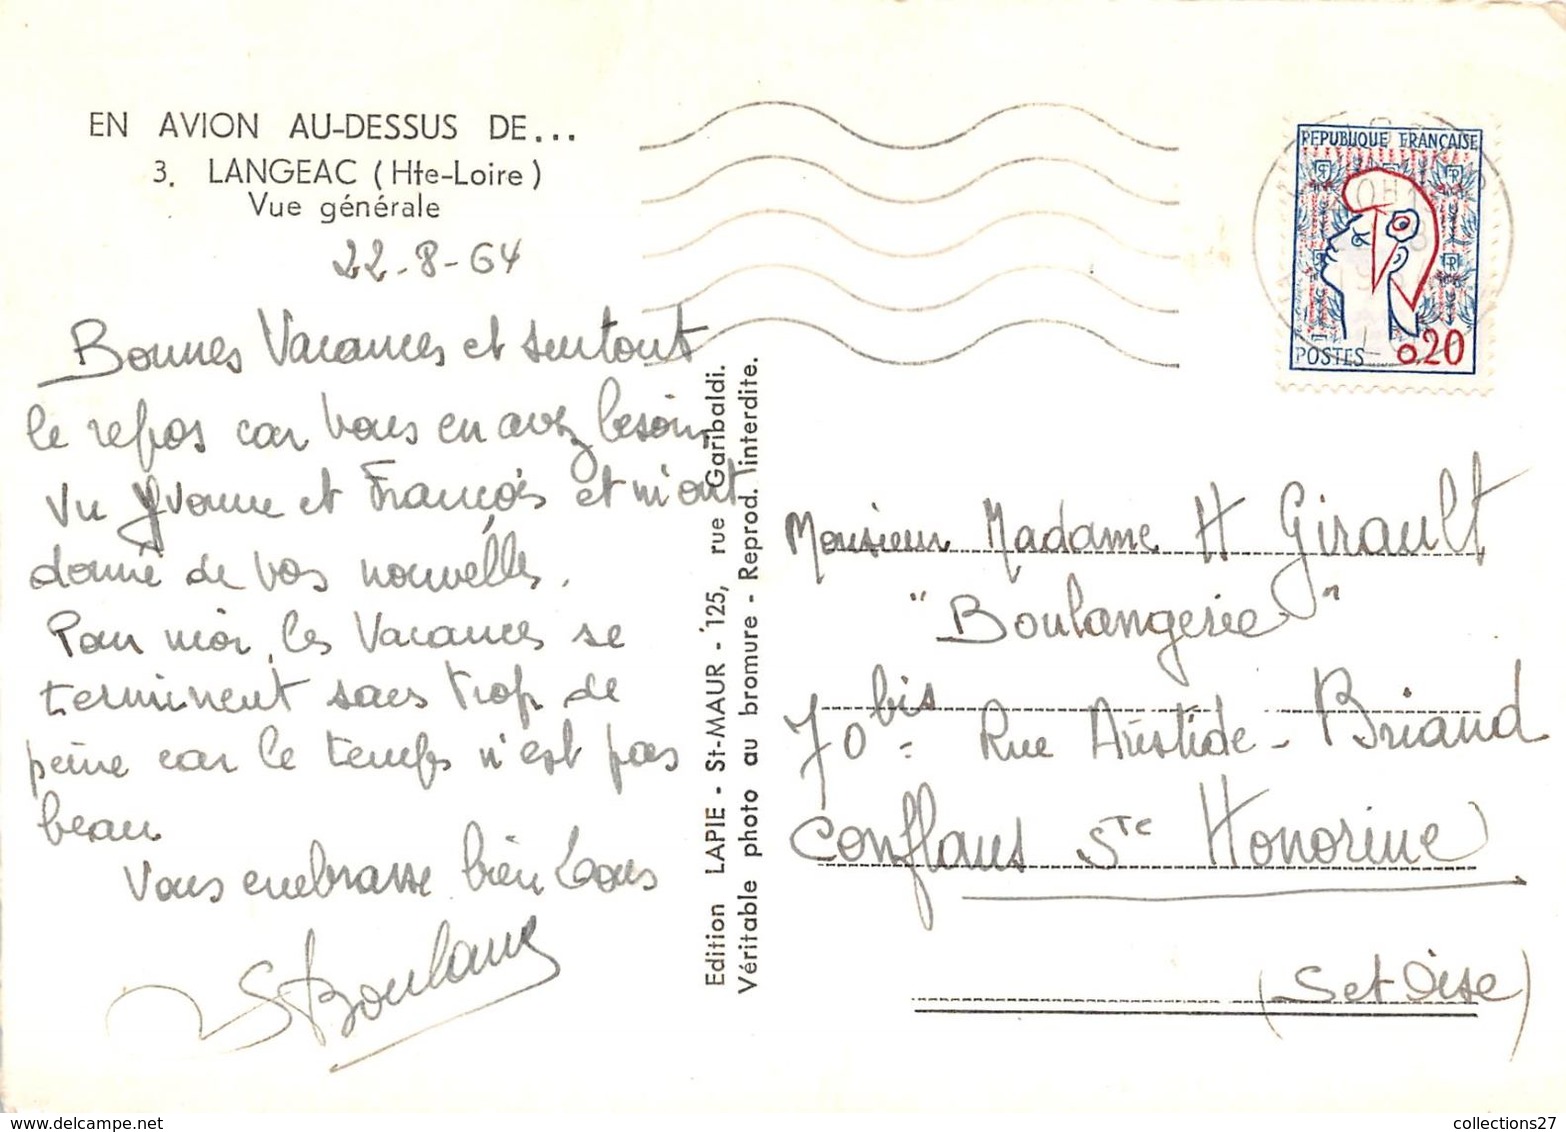 EN AVION AU-DESSUS DE...
3. LANGEAC (Hte-Loire)
Vue générale
22-8-64
Bonnes Vacances et surtout
le repos car vous en avez besoin
Vu Yvonne et François et m'ont
donné de vos nouvelles.
Pour moi, les Vacances se
terminent sans trop de
peine car le temps n'est pas
beau
Vous embrasse bien tous
Edition LAPIE - St-MAUR - 125, rue Garibaldi.
Véritable photo au bromure - Reprod. interdite.
REPUBLIQUE FRANÇAISE
POSTES 0,20
Monsieur Madame H Girault
"Boulangerie"
70 bis = Rue Aristide - Briand
Conflans Ste Honorine
(S et Oise)
collections27